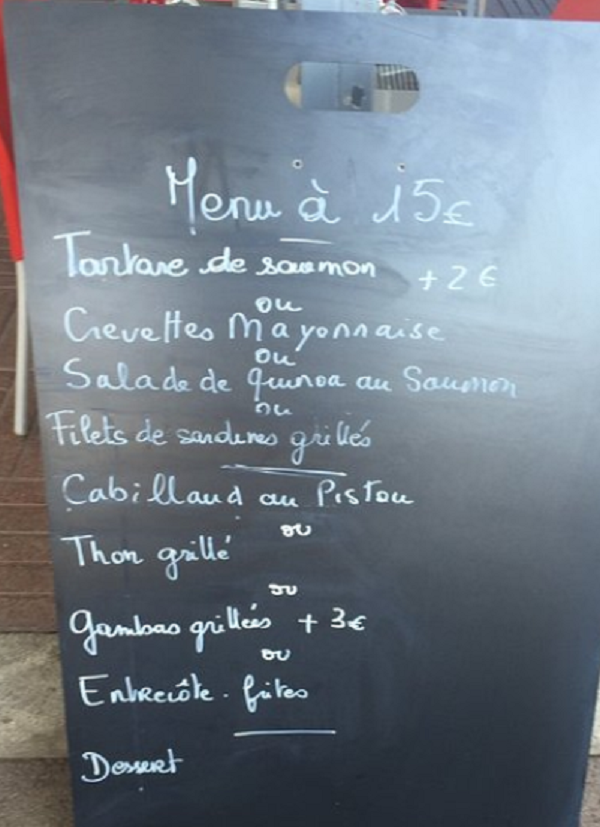 Menu à 15€
Tartare de saumon + 2 €
ou
Crevettes Mayonnaise
ou
Salade de quinoa au Saumon
ou
Filets de sardines grillés
Cabillaud au Pistou
ou
Thon grillé
ou
gambas grillées + 3€
ou
Entrecôte. frites
Dessert